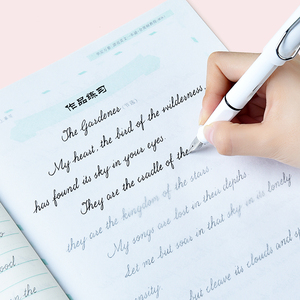 作品练习
The Gardener
My heart, the bird of the wilderness,
has found its sky in your eyes.
They are the cradle of the
they are the kingdom of the stars
My songs are lost in their depths
Let me but soar in that sky, in its lonely
but cleave its clouds and